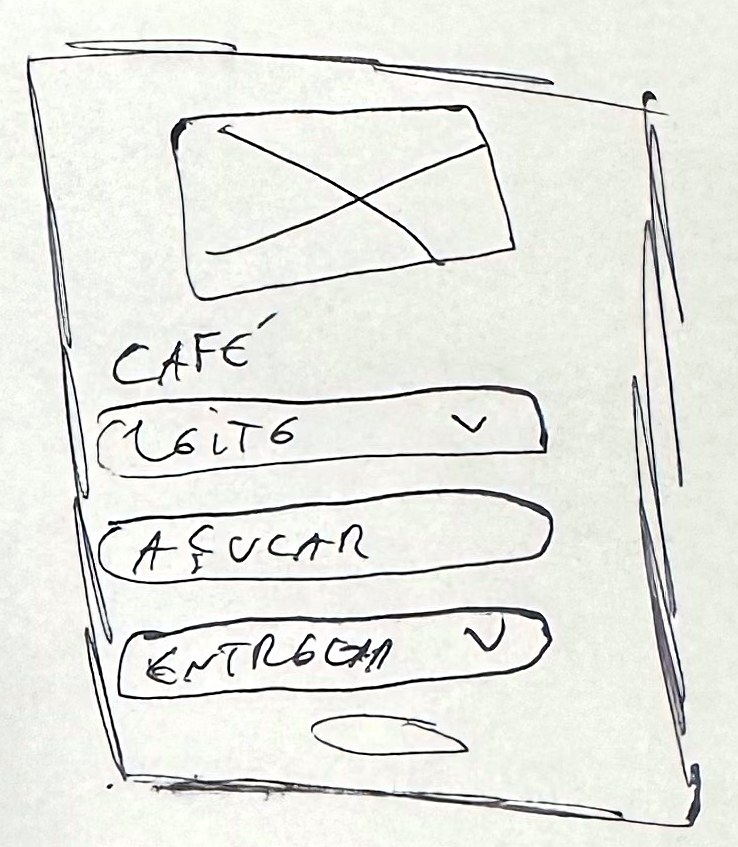 CAFÉ
LEITE
AÇUCAR
ENTREGAR